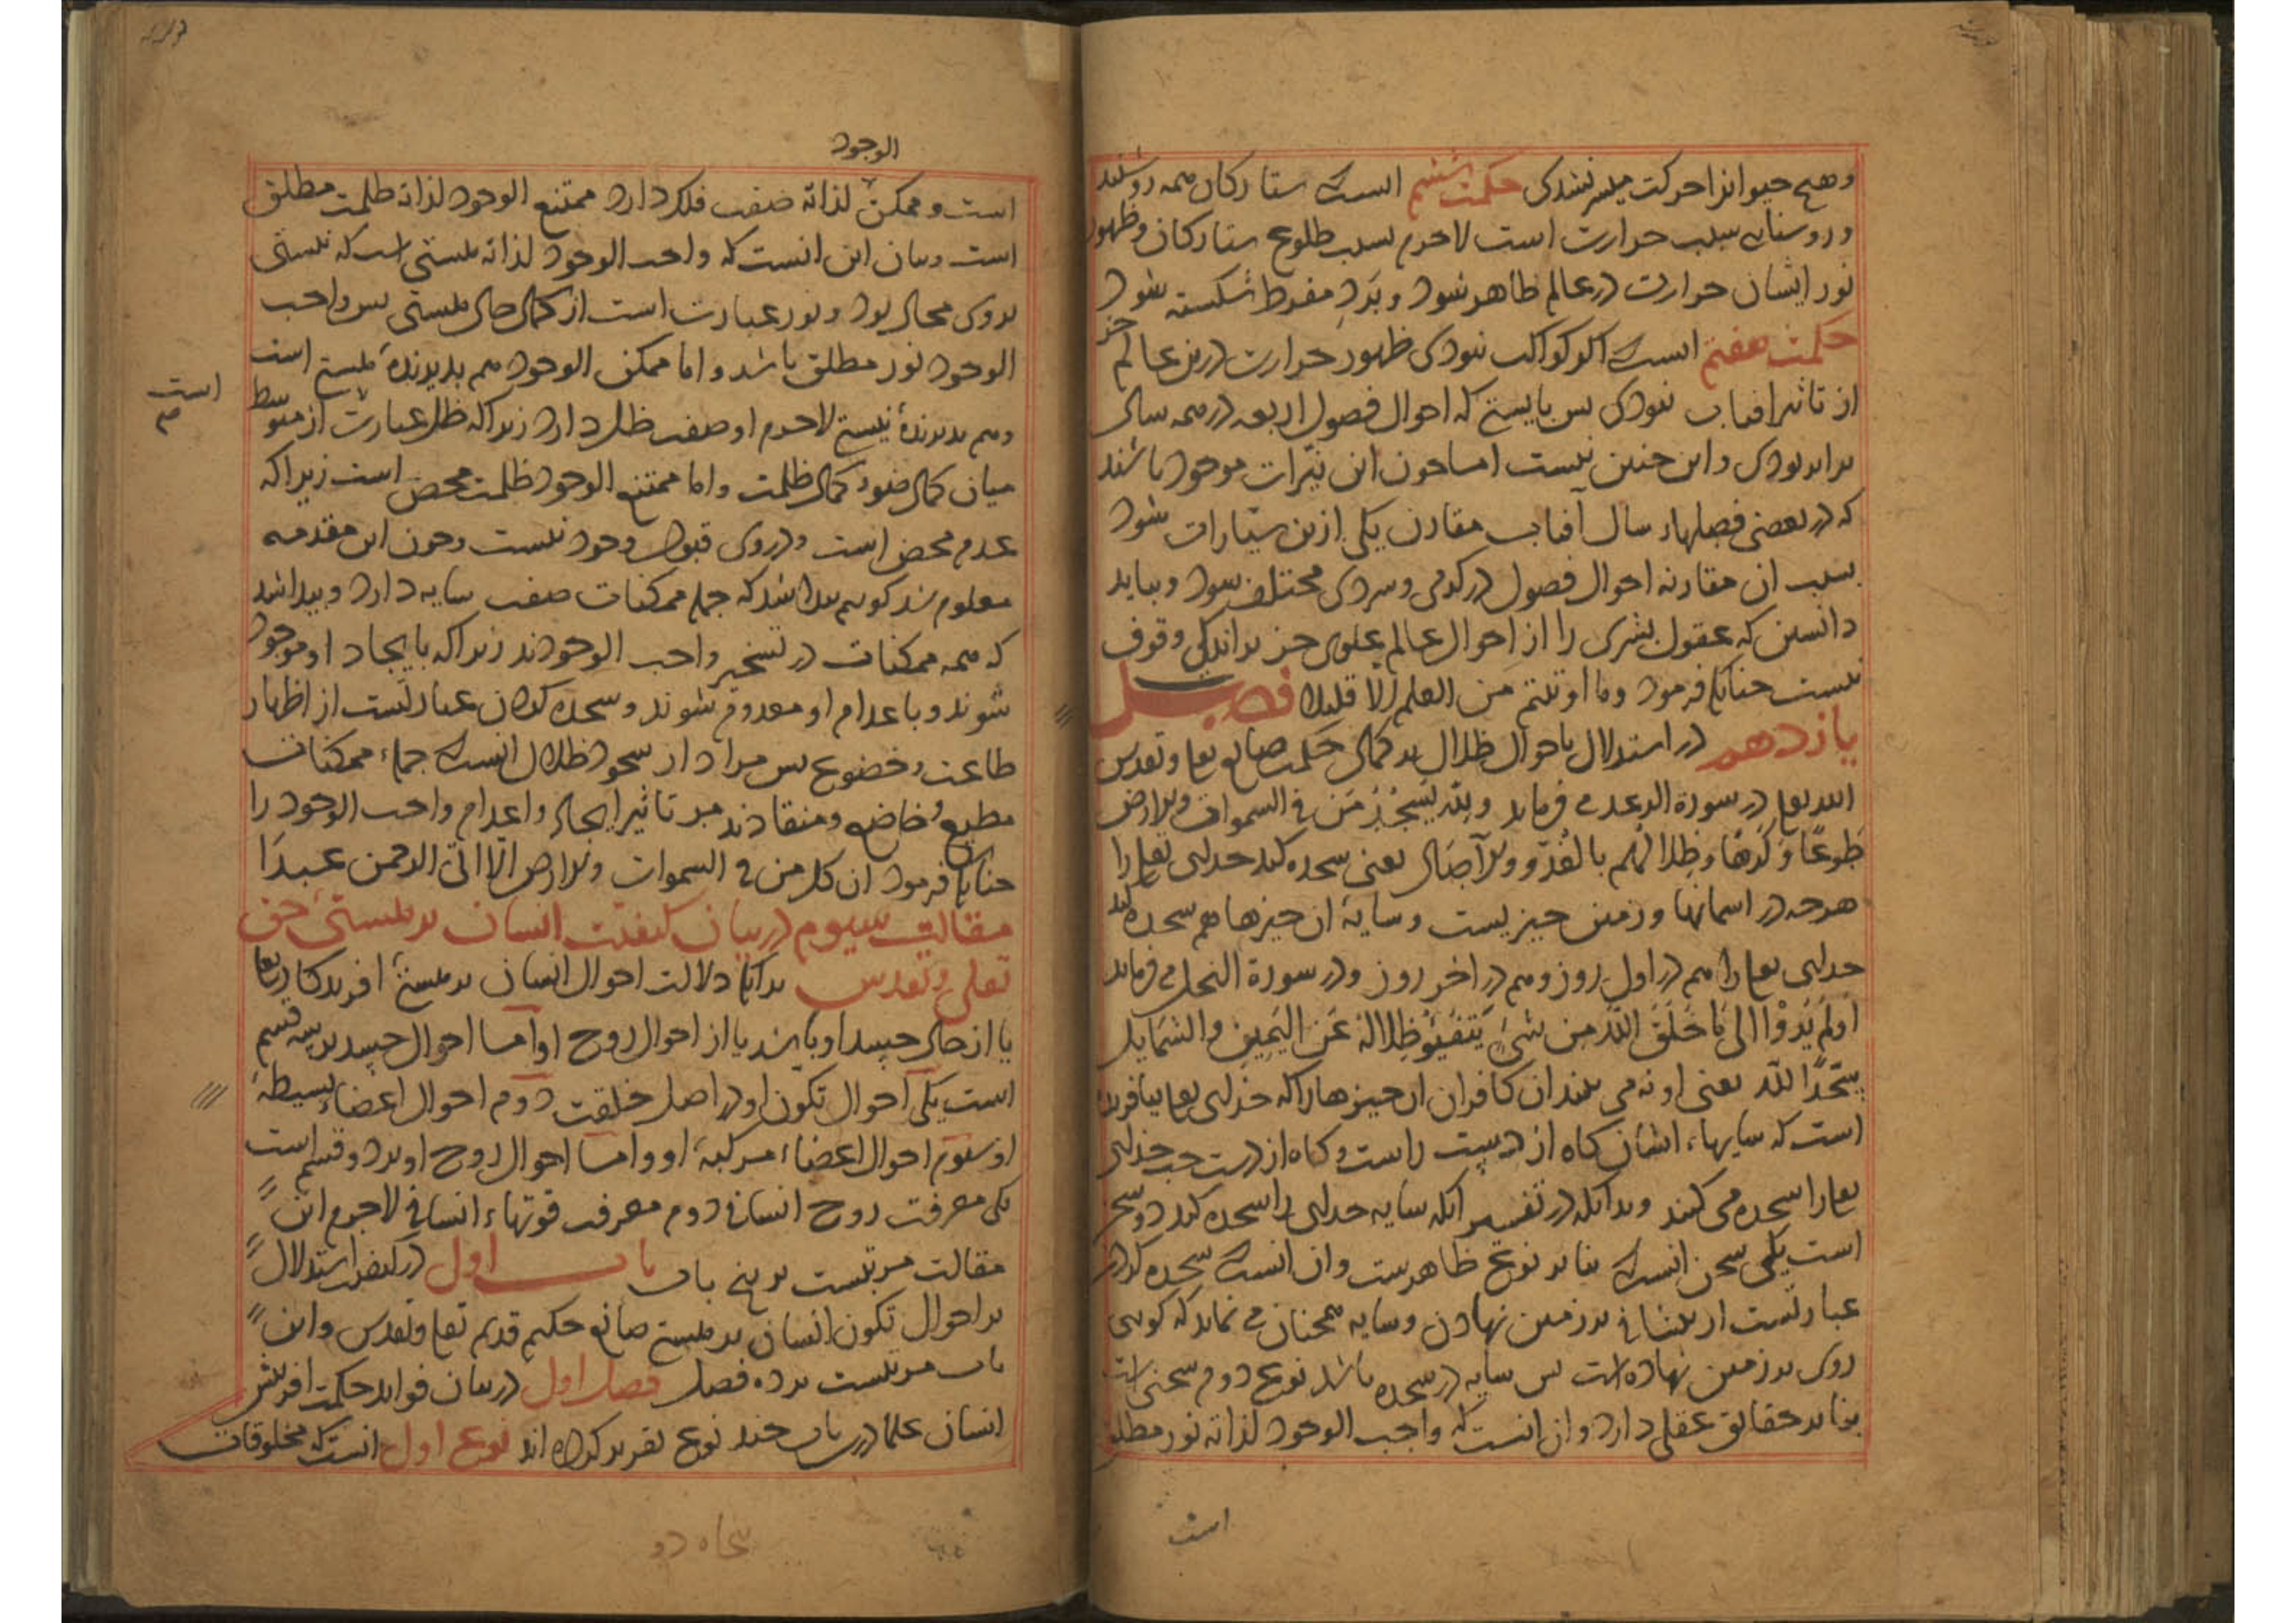 وهیچ حیوانرا حرکت میسر نشدی حکمت ششم انست که ستارکان همه روشنند
وروشنایی سبب حرارت است لاجرم بسبب طلوع ستارکان وظهور
نور ایشان حرارت در عالم ظاهر شود وبَردِ مفرط شکسته شود
حکمت هفتم انست که اکر کواکب نبودی ظهور حرارت درین عالم جز
از تاثیر افتاب نبودی بس بایستی که احوال فصول اربعه در همه سال
برابر بودی واین جنین نیست اما جون این نیّرات موجود باشند
که در بعضی فصلهاء سال آفتاب مقارن یکی ازین سیّارات شود
بسبب ان مقارنه احوال فصول در کرمی وسردی مختلف شود وبباید
دانستن که عقول بشری را از احوال عالم علوی جز بر اندکی وقوف
نیست جنانک فرمود وما اوتیتم من العلم الّا قلیلا فصل
یازدهم در استدلال باحوال ظلال بر کمال حکمت صانع تعا وتقدس
الله تعا در سورة الرعد می فرماید ولِلّٰه یَسْجُدُ مَن فی السموات والارض
طَوعًا وَکَرهًا وظِلالُهُم بالغُدُوّ والآصَال یعنی سجده کند خدای تعا را
هرجه در اسمانها وزمین جیزیست وسایۀ ان جیزها هم سجده کند
خدای تعا را هم در اول روز وهم در اخر روز ودر سورة النحل می فرماید
اَوَلَم یَرَوْا الیٰ مَا خَلَقَ اللّٰه مِن شیٍٔ یَتَفَیَّؤُ ظِلالُهُ عَن الیَمِینِ والشَمَایِل
سجّدًا للّٰه یعنی او نه می بینند ان کافران ان جیزها را که خدای تعا بیافریده
است که سایهاء ایشان کاه از دست راست وکاه از دست جب خدای
تعا را سجده می کنند وبدانکه در تفسیر انکه سایه خدای را سجده کند دو سخن
است یکی سخن انست که بنا بر نوعی ظاهرست وان انست که سجده کردن
عبارتست از بیشانی بر زمین نهادن وسایه همجنان می نماید که کویی
روی بر زمین نهاده است بس سایه در سجده باشد نوع دوم سخنی است
بنا بر حقایق عقلی دارد وان انست که واجب الوجود لذاته نور مطلق
است
الوجود
است وممکن لذاته صفت فلک دارد ممتنع الوجود لذاته ظلمت مطلق
است وبیان این انست که واجب الوجود لذاته هستی است که نیستی
بروی محال بود ونور عبارت است از کمال حال هستی بس واجب
الوجود نور مطلق باشد واما ممکن الوجود هم بدیرندۀ هستی است
وهم بدیرندۀ نیستی لاجرم او صفت ظل دارد زیرا که ظل عبارت از متوسط
است
میان کمال ضوء وکمال ظلمت واما ممتنع الوجود ظلمت محض است زیرا که
عدم محض است ودروی قبول وجود نیست وجون این مقدمه
معلوم شد کوییم بیدا شد که جمله ممکنات صفت سایه دارد وبیدا شد
که همه ممکنات در تسخیر واجب الوجودند زیرا که بایجاد او موجود
شوند وباعدام او معدوم شوند وسجده کردن عبارتست از اظهار
طاعت وخضوع بس مراد از سجود ظلال انست که جملهٔ ممکنات
مطیع وخاضع ومنقادند مر تاثیر ایجاد واعدام واجب الوجود را
جنانک فرمود ان کل من فی السموات والارض الّا اتی الرحمن عبدًا
مقالت سیوم در بیان کیفیت انسان بر هستئ حق
تعلی وتقدس بدانک دلالت احوال انسان بر هستئ افریدکار تعا
یا از حال جسد او باشد یا از احوال روح او اما احوال جسد بر سه قسم
است یکی احوال تکون او در اصل خلقت دوم احوال اعضاء بسیطۀ
او سوم احوال اعضاء مرکبۀ او واما احوال روح او بر دو قسم است
یکی معرفت روح انسانی دوم معرفت قوتهاء انسانی لاجرم این
مقالت مرتبست بر پنج باب باب اول در کیفیت استدلال
بر احوال تکون انسان بر هستی صانع حکیم قدیم تعا وتقدس واین
باب مرتبست بر ده فصل فصل اول در بیان فواید حکمت افرینش
انسان علما درین باب جند نوع تقریر کرده اند نوع اول انست که مخلوقات
بنجاه دو